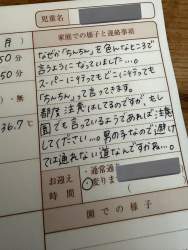 児童名
月)
家庭での様子と連絡事項
50分
50分
・無
36.7℃
なぜか"ちんちん"を色んなところで
言うようになっていました...。
スーパーに行ってもどこに行っても
"ちんちん"って言ってきます。
都度注意はしてるのですが、もし
園でも言っているようであれば注意
してください...。男の子なので避け
ては通れない道なんですかね...。
お迎え
時間
・通常通
・変りま
園での様子